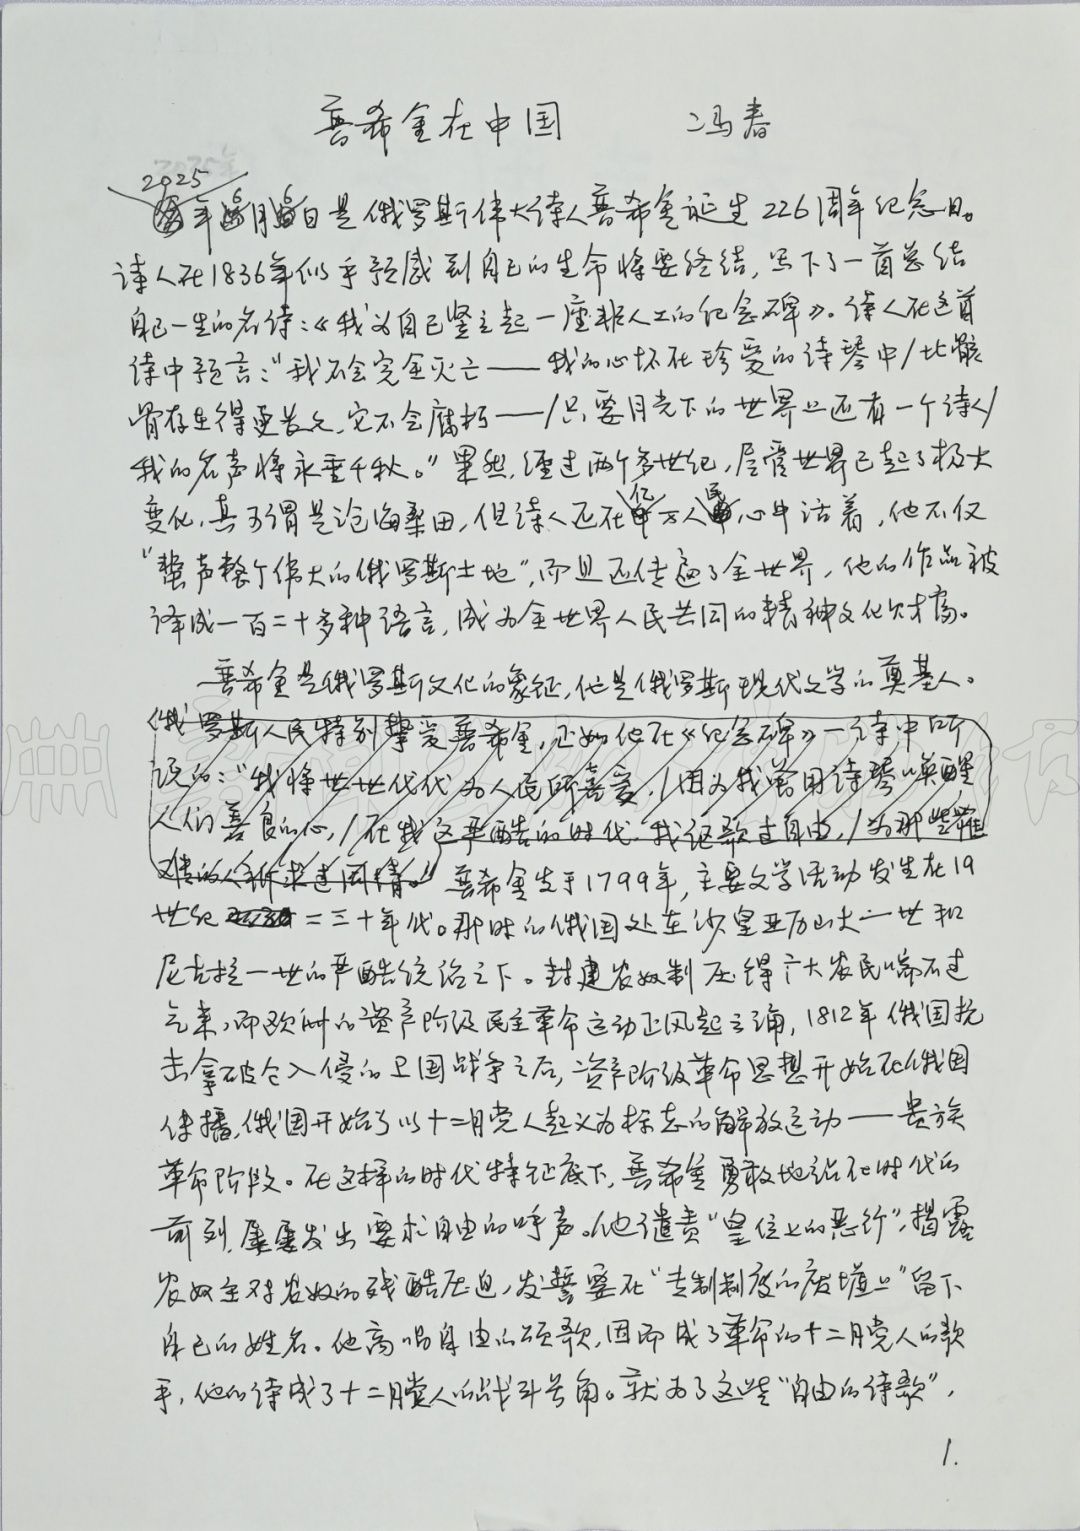 普希金在中国 冯春
2025
年 月 日是俄罗斯伟大诗人普希金诞生226周年纪念日。
诗人在1836年似乎预感到自己的生命将要终结，写下了一首总结
自己一生的名诗：《我为自己竖立起一座非人工的纪念碑》。诗人在这首
诗中预言：“我不会完全灭亡——我的心将在珍爱的诗琴中/比骸
骨存在得更长久，它不会腐朽——/只要月光下的世界上还有一个诗人/
我的名声将永垂千秋。”果然，经过两个多世纪，尽管世界已起了极大
变化，真可谓是沧海桑田，但诗人还在亿万人民心中活着，他不仅
“蜚声整个伟大的俄罗斯土地”，而且还传遍了全世界，他的作品被
译成一百二十多种语言，成为全世界人民共同的精神文化财富。
普希金是俄罗斯文化的象征，他是俄罗斯现代文学的奠基人。
俄罗斯人民特别挚爱普希金，正如他在《纪念碑》一诗中所
说的：“我将世世代代为人民所喜爱，/因为我曾用诗琴唤醒
人们善良的心，/在我这严酷的时代，我讴歌过自由，/为那些罹
难的人祈求过同情。”普希金生于1799年，主要文学活动发生在19
世纪二三十年代。那时的俄国处在沙皇亚历山大一世和
尼古拉一世的严酷统治之下。封建农奴制压得广大农民喘不过
气来，而欧洲的资产阶级民主革命运动正风起云涌，1812年俄国抗
击拿破仑入侵的卫国战争之后，资产阶级革命思想开始在俄国
传播，俄国开始了以十二月党人起义为标志的解放运动——贵族
革命阶段。在这样的时代特征底下，普希金勇敢地站在时代的
前列，屡屡发出要求自由的呼声。他谴责“皇位上的恶行”，揭露
农奴主对农奴的残酷压迫，发誓要在“专制制度的废墟上”留下
自己的姓名。他高唱自由的颂歌，因而成了革命的十二月党人的歌
手，他的诗成了十二月党人的战斗号角。就为了这些“自由的诗歌”，
1.